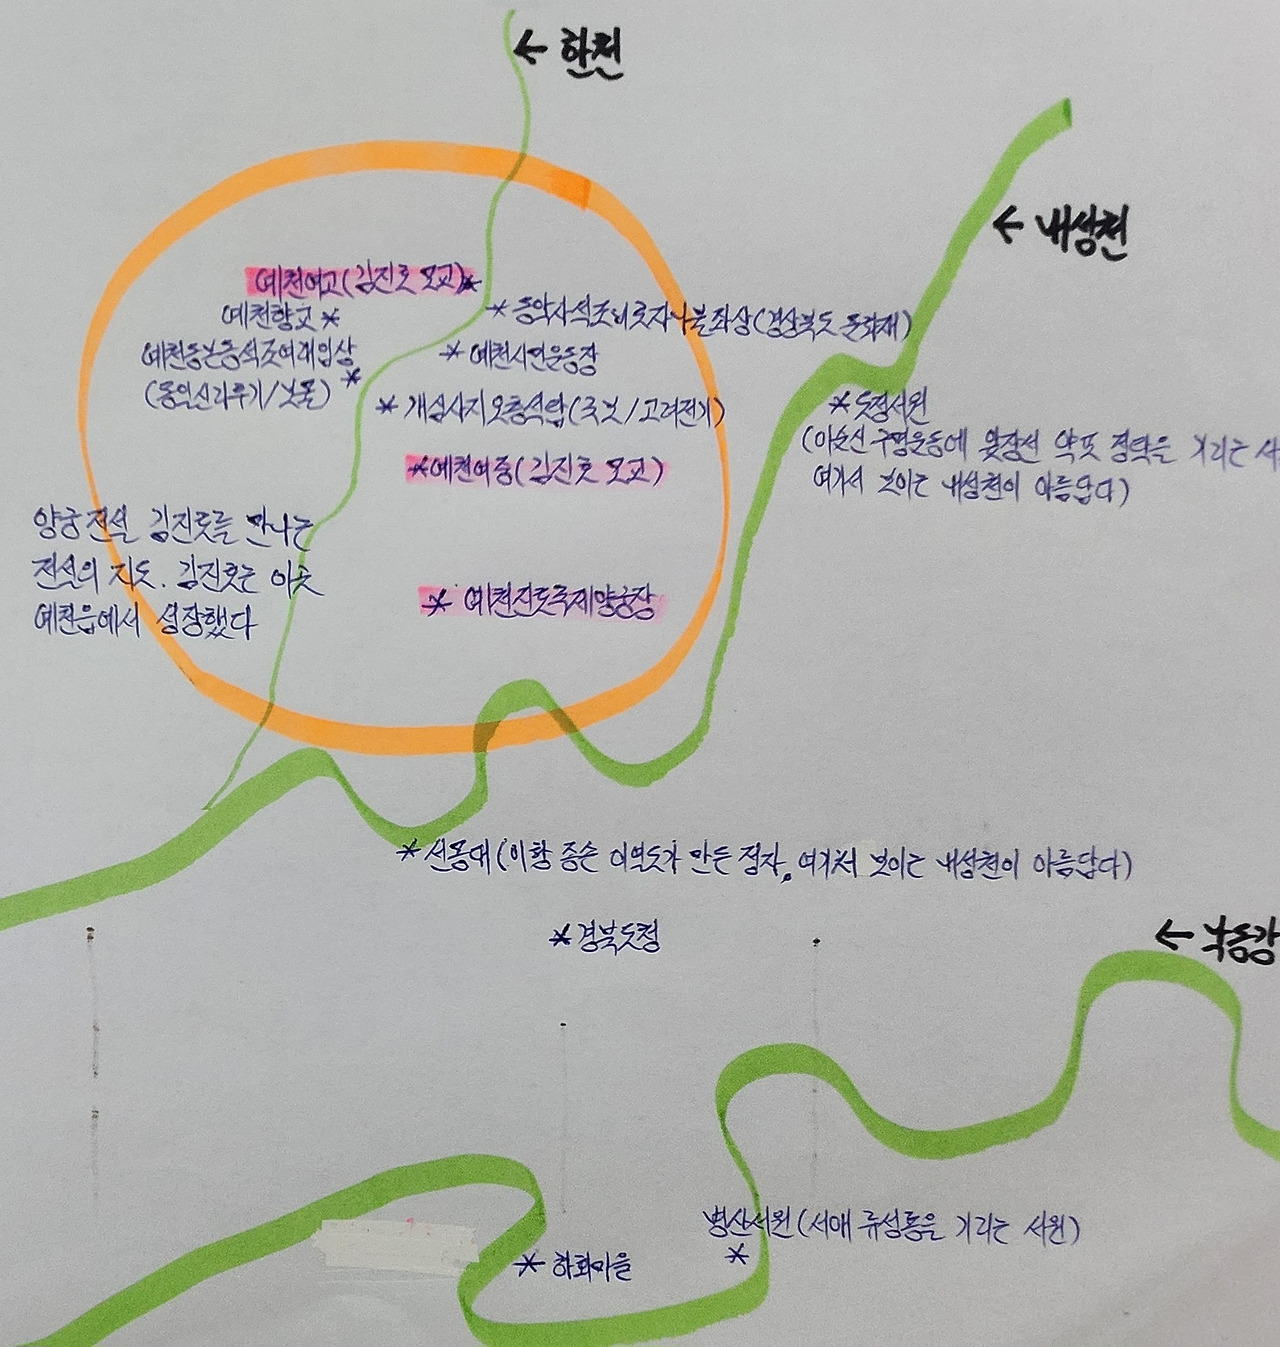 ← 한천
← 내성천
예천여고(김진호 모교)*
예천향교 *
* 동악사석조비로자나불좌상(경상북도 문화재)
예천동본동석조여래입상
(통일신라후기/보물) *
* 예천시민운동장
* 개심사지오층석탑(보물/고려전기)
* 도정서원
(이순신 구명운동에 앞장선 약포 정탁을 기리는 서
여기서 보이는 내성천이 아름답다)
*예천여중(김진호 모교)
양궁전설 김진호를 만나는
전설의 지도. 김진호는 이곳
예천읍에서 성장했다
* 예천진호국제양궁장
* 선몽대(이황 종손 이열도가 만든 정자, 여기서 보이는 내성천이 아름답다)
*경북도청
← 낙동강
병산서원(서애 류성룡을 기리는 서원)
*
* 하회마을